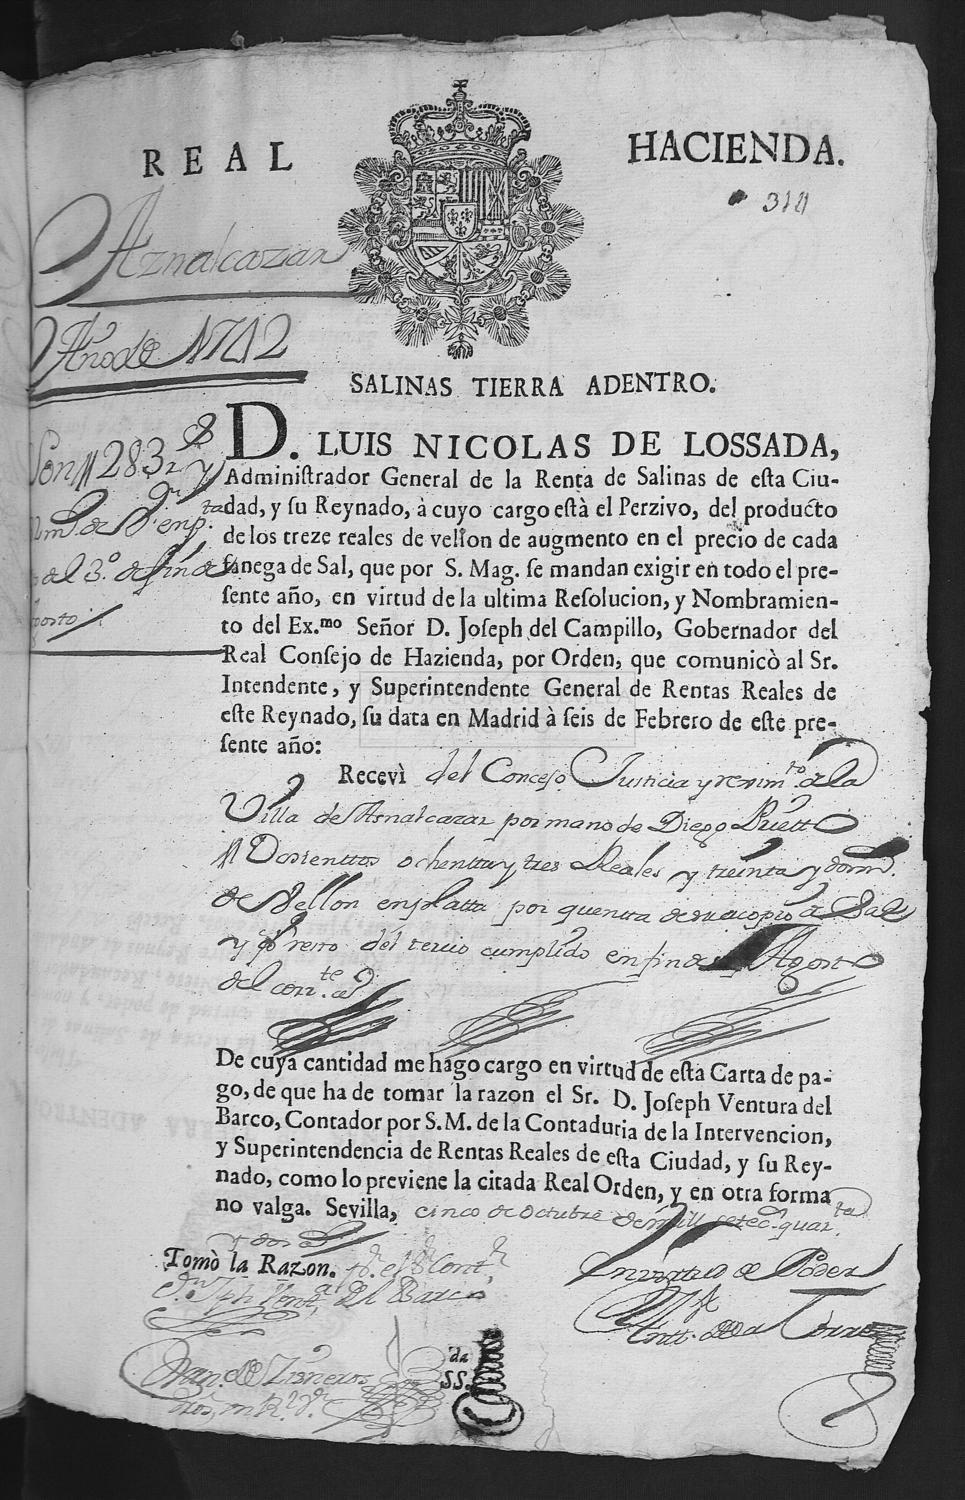 REAL HACIENDA.
314
Aznalcazar
Año de 1742
SALINAS TIERRA ADENTRO.
Son 283 rs y
D. LUIS NICOLAS DE LOSSADA,
Administrador General de la Renta de Salinas de esta Ciu-
dad, y su Reynado, à cuyo cargo està el Perzivo, del producto
de los treze reales de vellon de augmento en el precio de cada
fanega de Sal, que por S. Mag. se mandan exigir en todo el pre-
sente año, en virtud de la ultima Resolucion, y Nombramien-
to del Ex.mo Señor D. Joseph del Campillo, Gobernador del
Real Consejo de Hazienda, por Orden, que comunicò al Sr.
Intendente, y Superintendente General de Rentas Reales de
este Reynado, su data en Madrid à seis de Febrero de este pre-
sente año:
Recevì del Concejo Justicia y rexim.to de la
Villa de Aznalcazar por mano de Diego
Dosienttos ochentta y tres Reales y treinta y dos m.
de Vellon en platta por quenta de su acopio de Sal
y prero del tercio cumplido en fin de Agosto
del corr.te a.
De cuya cantidad me hago cargo en virtud de esta Carta de pa-
go, de que ha de tomar la razon el Sr. D. Joseph Ventura del
Barco, Contador por S. M. de la Contaduria de la Intervencion,
y Superintendencia de Rentas Reales de esta Ciudad, y su Rey-
nado, como lo previene la citada Real Orden, y en otra forma
no valga. Sevilla, cinco de octubre de mill setec. quar.ta
y dos a.
Tomò la Razon. por el S.r Cont.r
D.n Jph Vent.a del Barco
En virtud de Poder
Antt. de la Torre
da
SS.